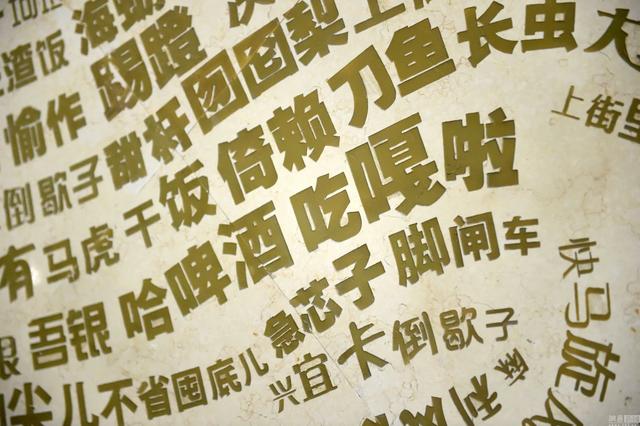 渣饭
海
踢蹬
囫囵梨
上
愉作
甜杆
倚赖
刀鱼
长虫
大
上街里
倒歇子
干饭
吃嘎啦
有马虎
哈啤酒
脚闸车
吾银
急芯子
快马旋
尖儿不省囤底儿
兴宜
卡倒歇子
麻利